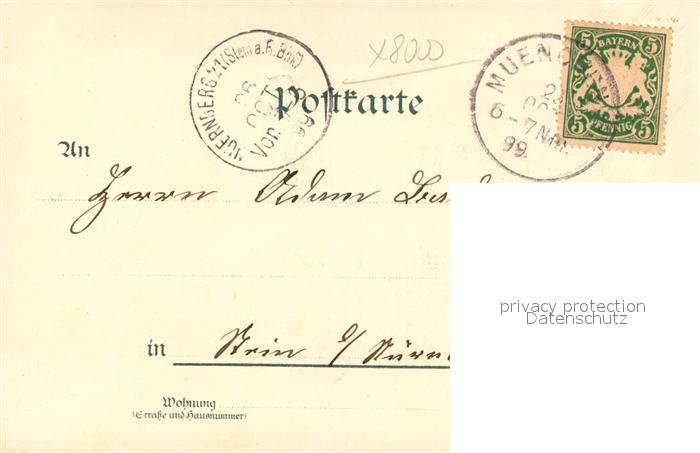 x8000
NUERNBERG 21 (Stein a. R. Bhf.)
26 OCT
Vor.
99
MUEN
OCT
6-7 Nm.
99
5 BAYERN 5
5 PFENNIG 5
Postkarte
An
Herrn Adam
in Stein b/
Wohnung
(Straße und Hausnummer)
privacy protection
Datenschutz